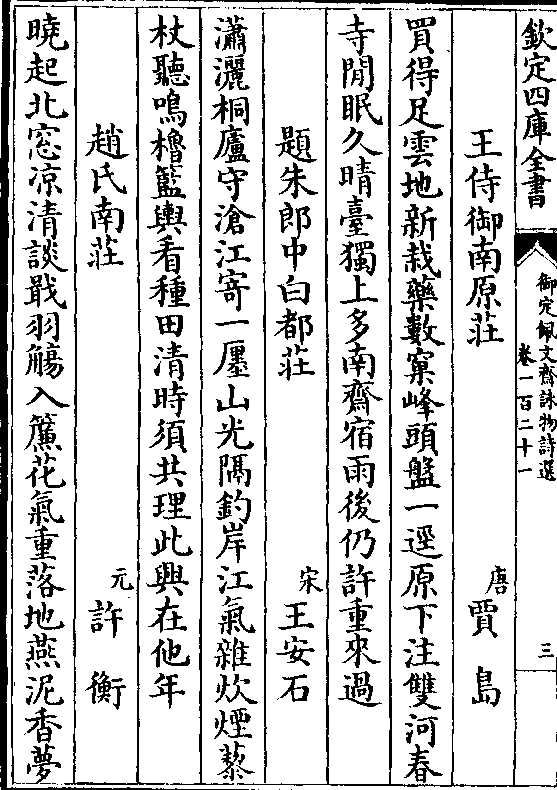 欽定四庫全書
御定佩文齋詠物詩選
卷一百二十一
三
王侍御南原莊 唐 賈島
買得足雲地新栽藥數窠峰頭盤一逕原下注雙河春
寺閒眠久晴臺獨上多南齋宿雨後仍許重來過
題朱郎中白都莊 宋 王安石
瀟灑桐廬守滄江寄一廛山光隔釣岸江氣雜炊煙藜
杖聽鳴櫓籃輿看種田清時須共理此興在他年
趙氏南莊 元 許衡
曉起北窓凉清談戢羽觴入簾花氣重落地燕泥香夢